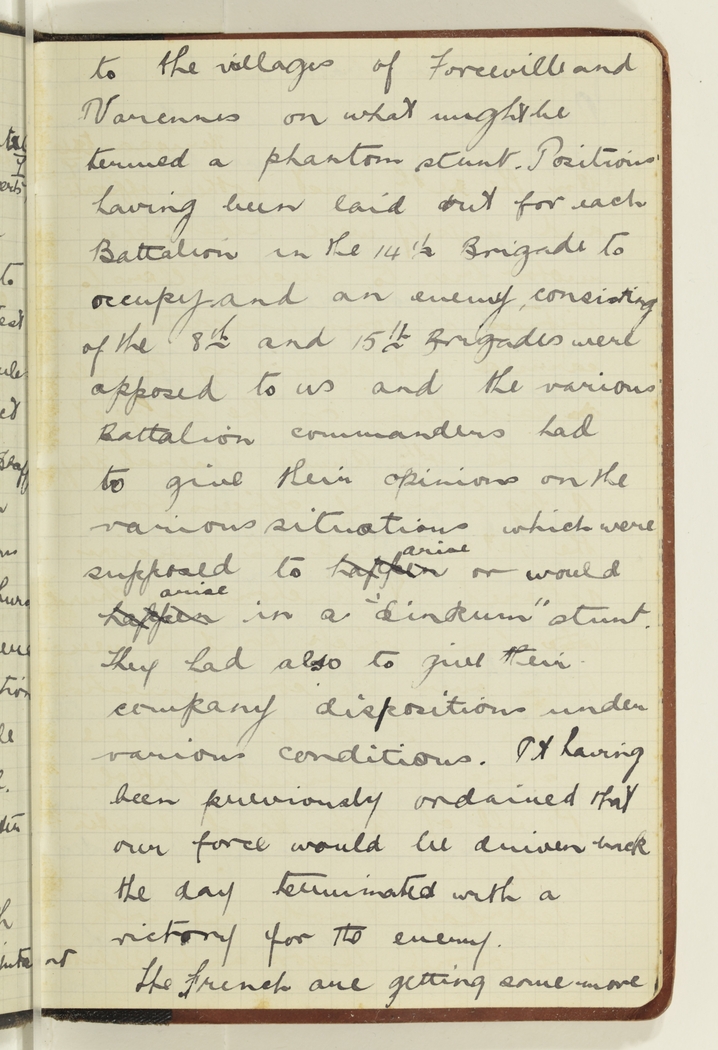 to the villages of Forceville and
Varennes on what might be
termed a phantom stunt. Positions
having been laid out for each
Battalion in the 14th Brigade to
occupy and an enemy, consisting
of the 8th and 15th Brigades were
opposed to us and the various
Battalion commanders had
to give their opinions on the
various situations which were
supposed to happen arise or would
happen arise in a "dinkum" stunt.
They had also to give their
company dispositions under
various conditions. It having
been previously ordained that
our force would be driven back
the day terminated with a
victory for the enemy.
The French are getting some more